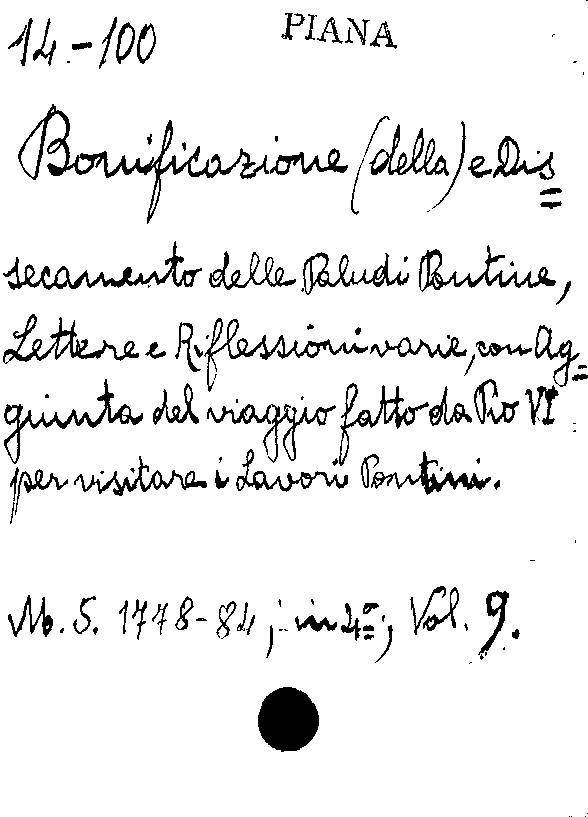 14.-100
PIANA
Bonificazione (della) e Dis=
secamento delle Paludi Pontine,
Lettere e Riflessioni varie, con Ag=
giunta del viaggio fatto da Pio VI
per visitare i Lavori Pontini.
M.S. 1778-84; in 4º; Vol. 9.